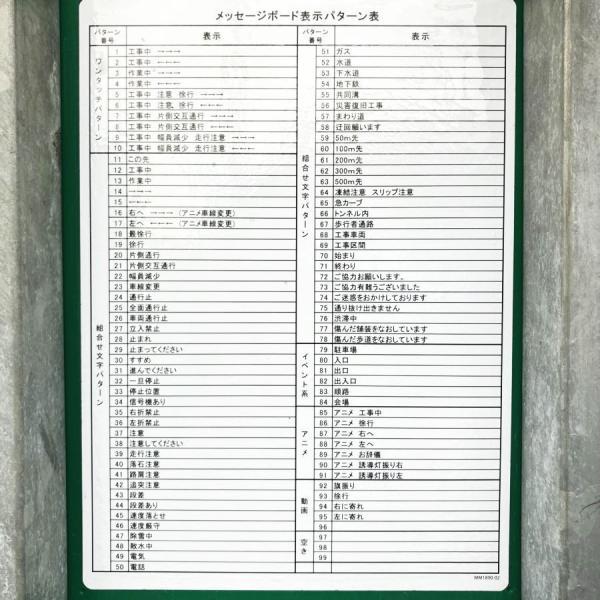 メッセージボード表示パターン表
パターン番号 表示
ワンタッチパターン
1 工事中 →→→
2 工事中 ←←←
3 作業中 →→→
4 作業中 ←←←
5 工事中 注意 徐行 →→→
6 工事中 注意 徐行 ←←←
7 工事中 片側交互通行 →→→
8 工事中 片側交互通行 ←←←
9 工事中 幅員減少 走行注意 →→→
10 工事中 幅員減少 走行注意 ←←←
組合せ文字パターン
11 この先
12 工事中
13 作業中
14 →→→
15 ←←←
16 右へ →→→ (アニメ車線変更)
17 左へ ←←← (アニメ車線変更)
18 最徐行
19 徐行
20 片側通行
21 片側交互通行
22 幅員減少
23 車線変更
24 通行止
25 全面通行止
26 車両通行止
27 立入禁止
28 止まれ
29 止まってください
30 すすめ
31 進んでください
32 一旦停止
33 停止位置
34 信号機あり
35 右折禁止
36 左折禁止
37 注意
38 注意してください
39 走行注意
40 落石注意
41 路肩注意
42 追突注意
43 段差
44 段差あり
45 速度落とせ
46 速度厳守
47 除雪中
48 散水中
49 電気
50 電話
パターン番号 表示
組合せ文字パターン
51 ガス
52 水道
53 下水道
54 地下鉄
55 共同溝
56 災害復旧工事
57 まわり道
58 迂回願います
59 50m先
60 100m先
61 200m先
62 300m先
63 500m先
64 凍結注意 スリップ注意
65 急カーブ
66 トンネル内
67 歩行者通路
68 工事車両
69 工事区間
70 始まり
71 終わり
72 ご協力お願いします。
73 ご協力有難うございました
74 ご迷惑をおかけしております
75 通り抜け出きません
76 渋滞中
77 傷んだ舗装をなおしています
78 傷んだ歩道をなおしています
イベント系
79 駐車場
80 入口
81 出口
82 出入口
83 順路
84 会場
アニメ
85 アニメ 工事中
86 アニメ 徐行
87 アニメ 右へ
88 アニメ 左へ
89 アニメ お辞儀
90 アニメ 誘導灯振り右
91 アニメ 誘導灯振り左
動画
92 旗振り
93 徐行
94 右に寄れ
95 左に寄れ
96
空き
97
98
99
MM1890-02